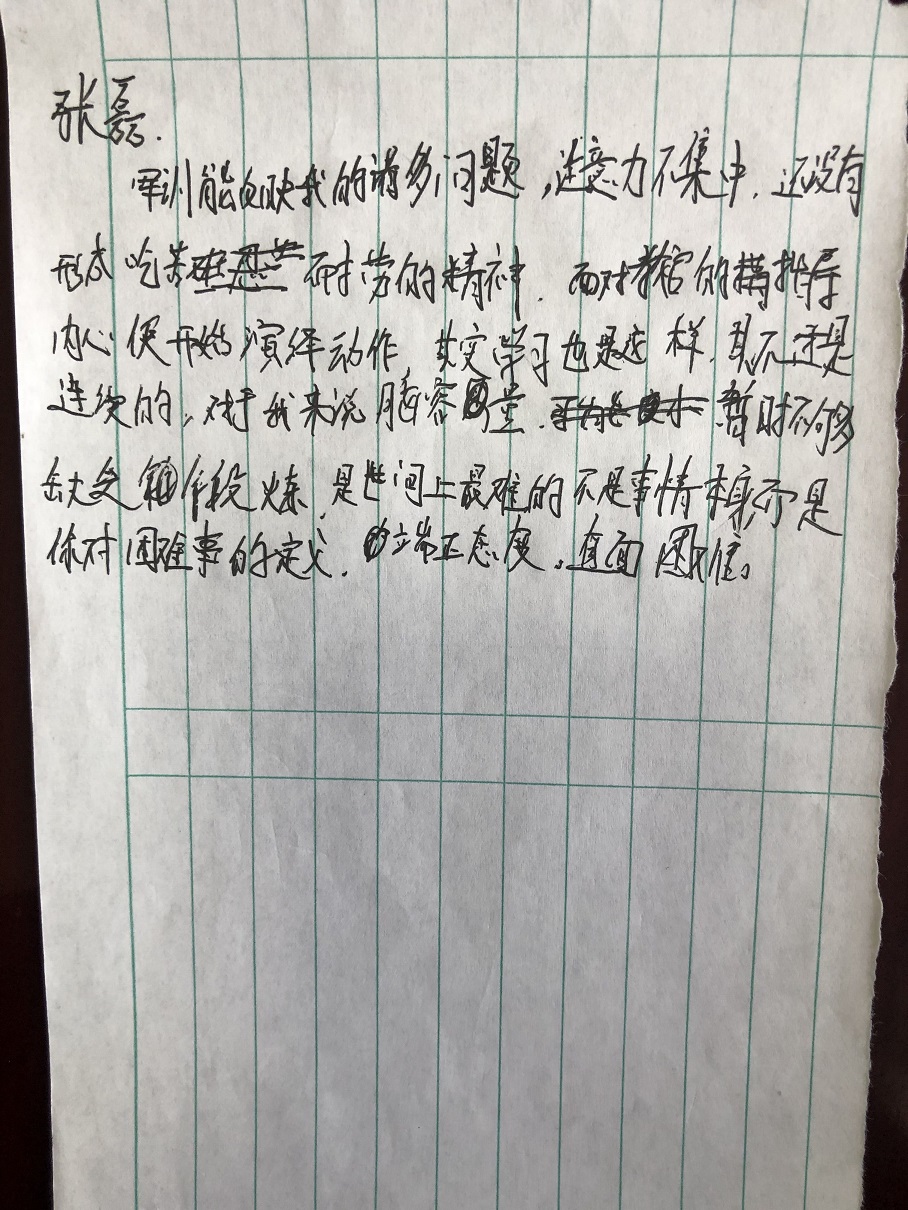 张磊.
军训能反映我的诸多问题,注意力不集中.还没有
形成吃苦耐劳的精神.面对教官的指导
内心便开始演绎动作,其实学习也是这样.
连续的,对于我来说脑容量.暂时不够多
缺乏锻炼.是世间上最难的不是事情本身而是
你对困难事的定义.端正态度,直面困难。